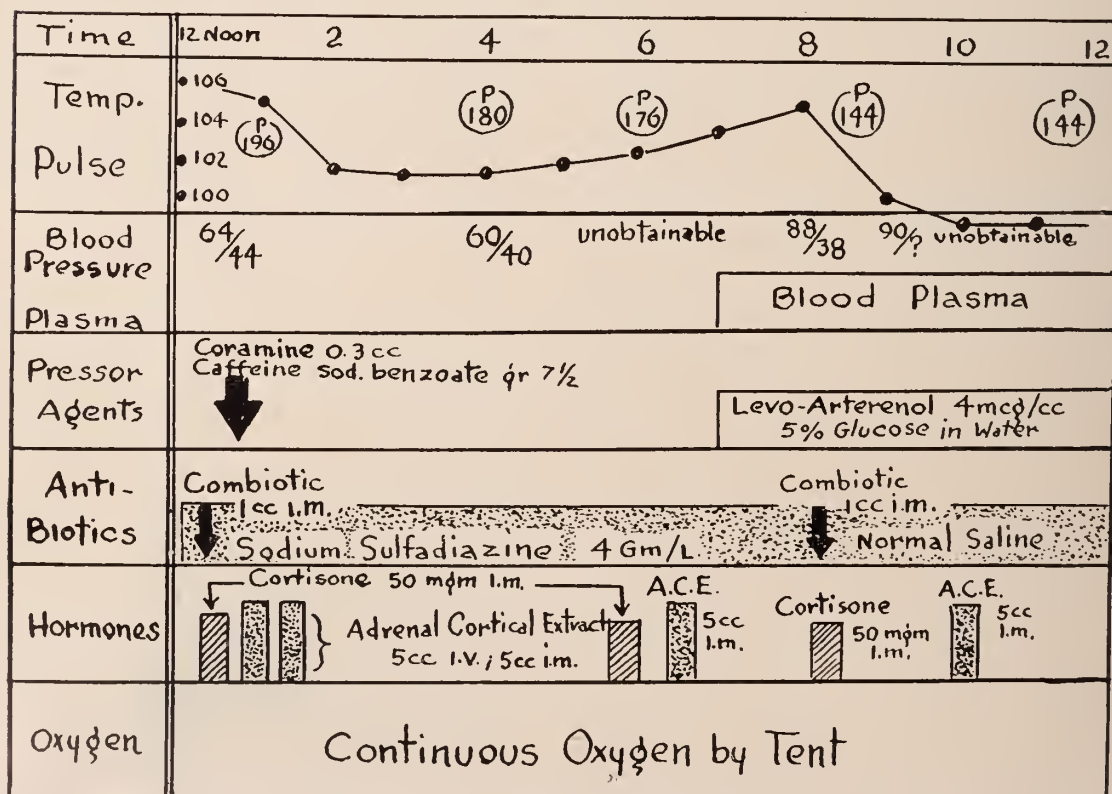 Time 12 Noon 2 4 6 8 10 12
Temp.
Pulse
106
104
102
100
P 196
P 180
P 176
P 144
P 144
Blood Pressure
Plasma
64/44
60/40
unobtainable
88/38
90/?
unobtainable
Blood Plasma
Pressor
Agents
Coramine 0.3 cc
Caffeine sod. benzoate gr 7½
Levo-Arterenol 4mcg/cc
5% Glucose in Water
Anti-
Biotics
Combiotic
1cc i.m.
Combiotic
1cc i.m.
Sodium Sulfadiazine 4 Gm/L Normal Saline
Hormones
Cortisone 50 mgm I.m.
Adrenal Cortical Extract
5cc I.V.; 5cc i.m.
A.C.E.
5cc
I.m.
Cortisone
50 mgm
I.m.
A.C.E.
5cc
I.m.
Oxygen
Continuous Oxygen by Tent